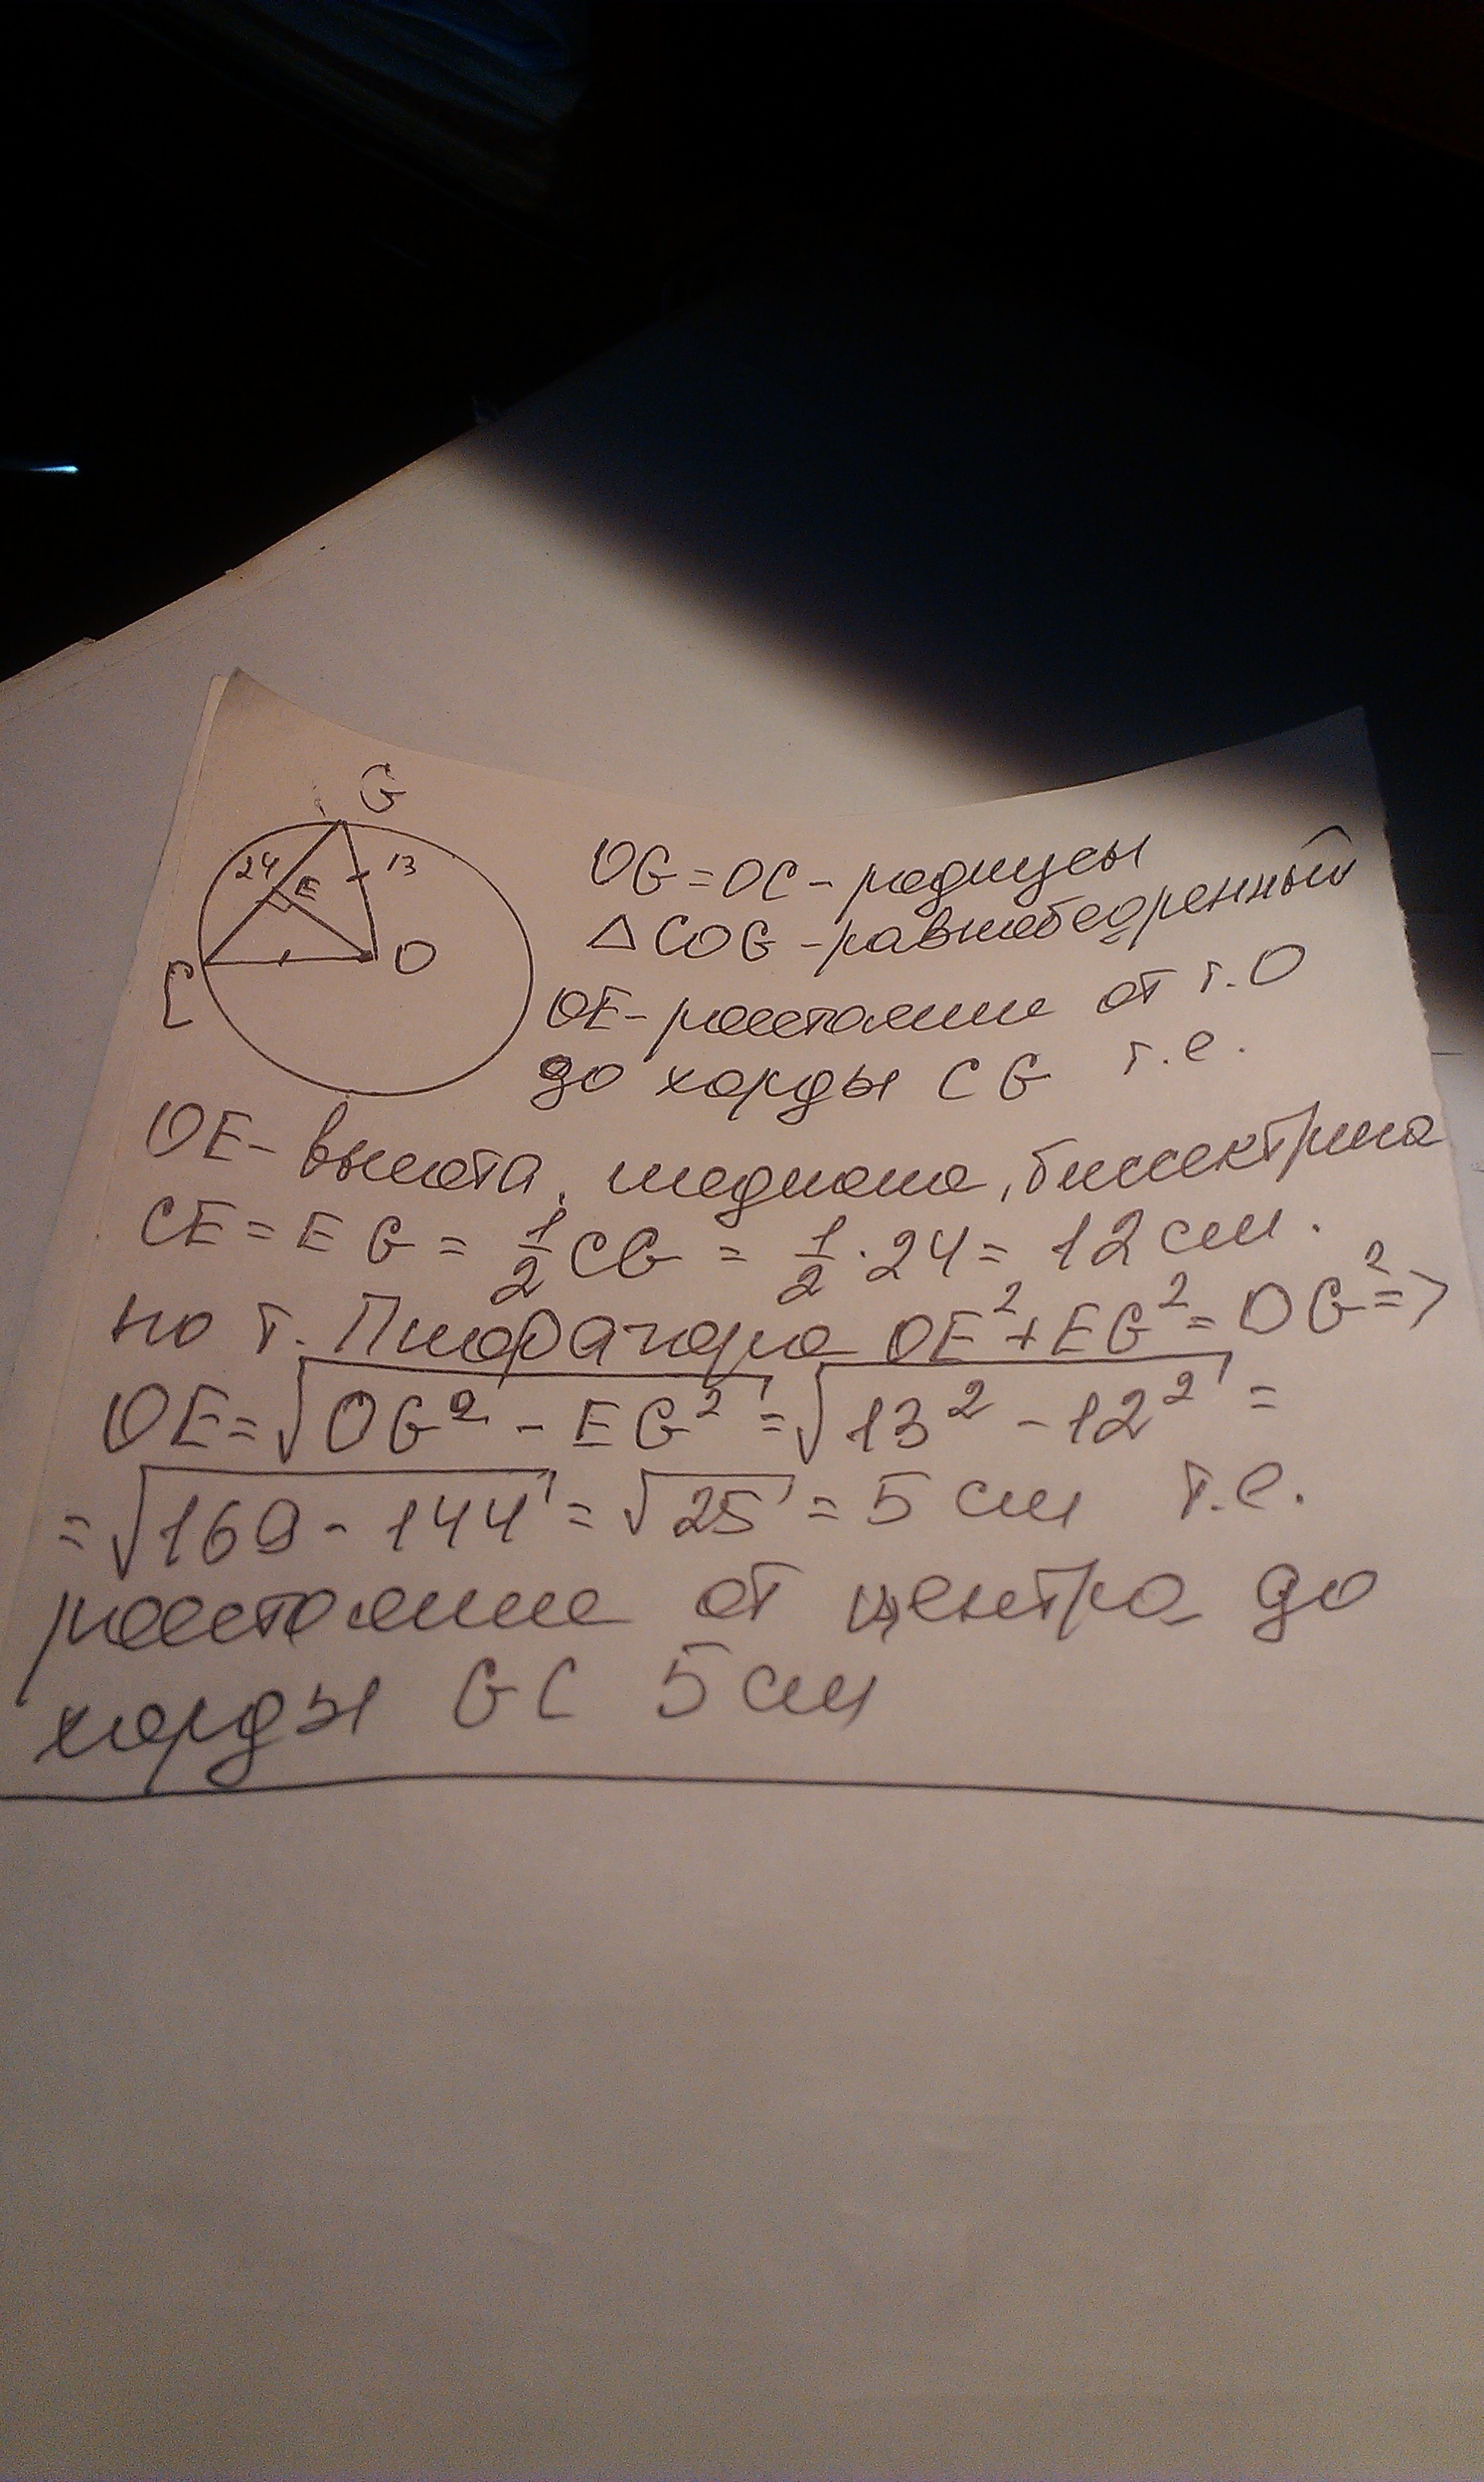 G
24
E
13
C
O
OG = OC - радиусы
△COG - равнобедренный
OE - расстояние от т. O
до хорды CG т.е.
OE - высота, медиана, биссектриса
CE = EG = 1/2 CG = 1/2 · 24 = 12 см.
по т. Пифагора OE² + EG² = OG² =>
OE = √(OG² - EG²) = √(13² - 12²) =
= √(169 - 144) = √25 = 5 см т.е.
расстояние от центра до
хорды GC 5 см